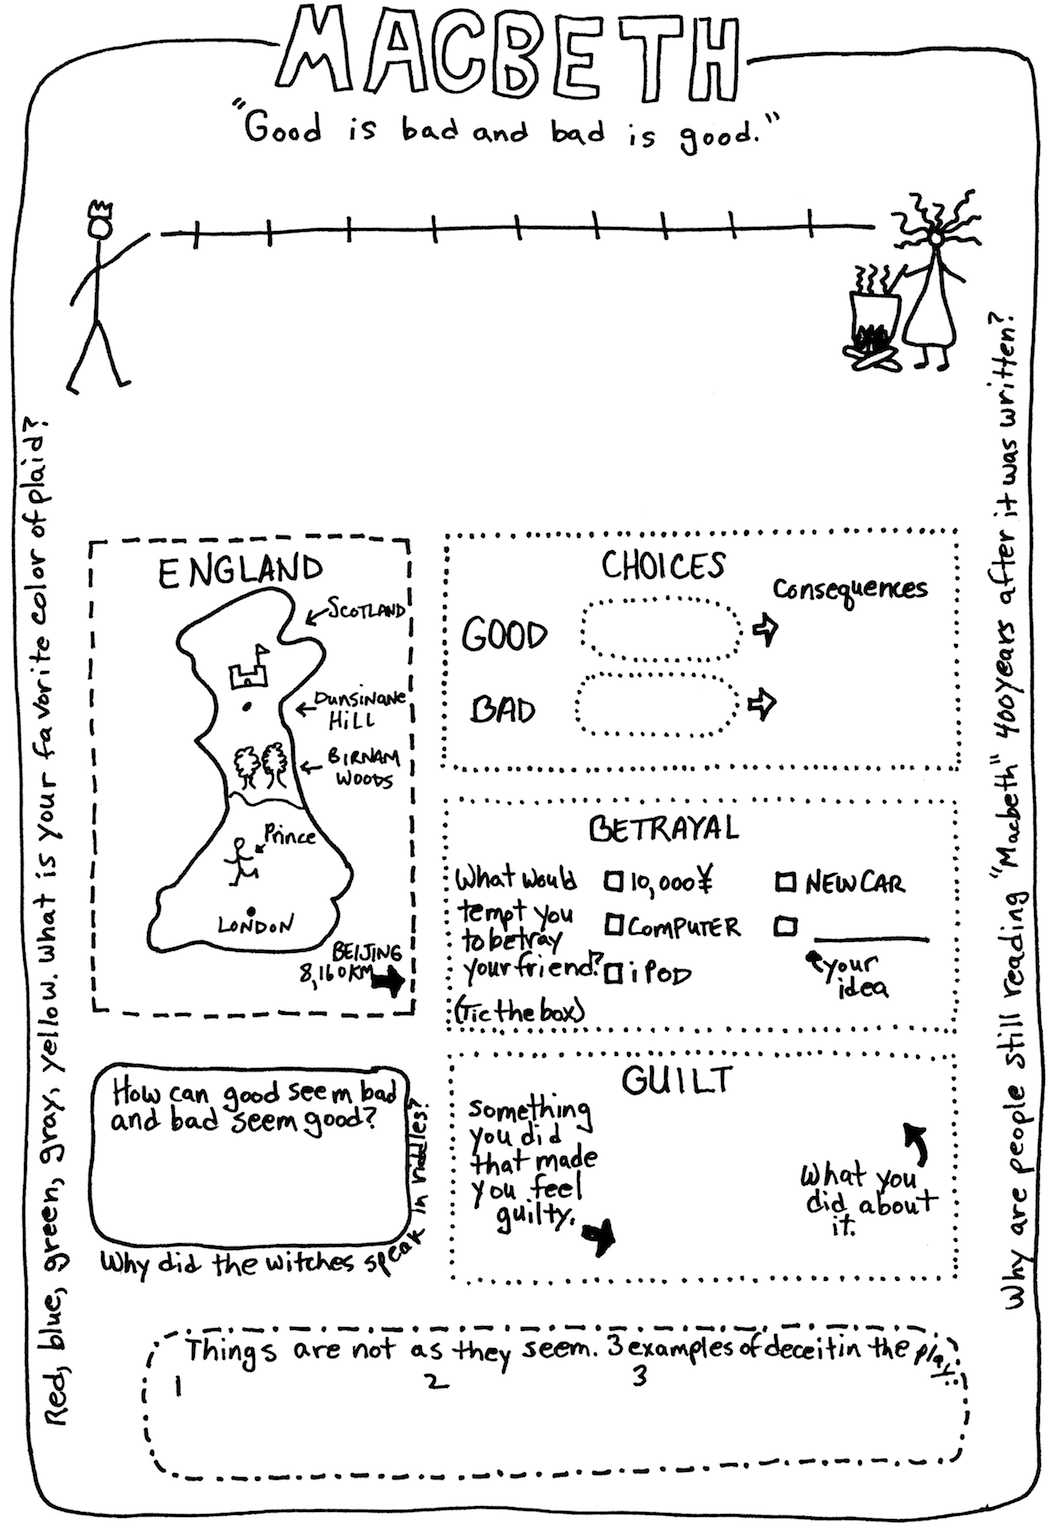 MACBETH
"Good is bad and bad is good."
Red, blue, green, gray, yellow. What is your favorite color of plaid?
Why are people still reading "Macbeth" 400 years after it was written?
ENGLAND
SCOTLAND
DUNSINANE
HILL
BIRNAM
WOODS
Prince
LONDON
BEIJING
8,160KM
CHOICES
Consequences
GOOD
BAD
BETRAYAL
What would
tempt you
to betray
your friend?
(Tic the box)
10,000¥
COMPUTER
iPOD
NEW CAR
your
idea
How can good seem bad
and bad seem good?
Why did the witches speak in riddles?
GUILT
Something
you did
that made
you feel
guilty.
What you
did about
it.
Things are not as they seem. 3 examples of deceit in the play:
1 2 3